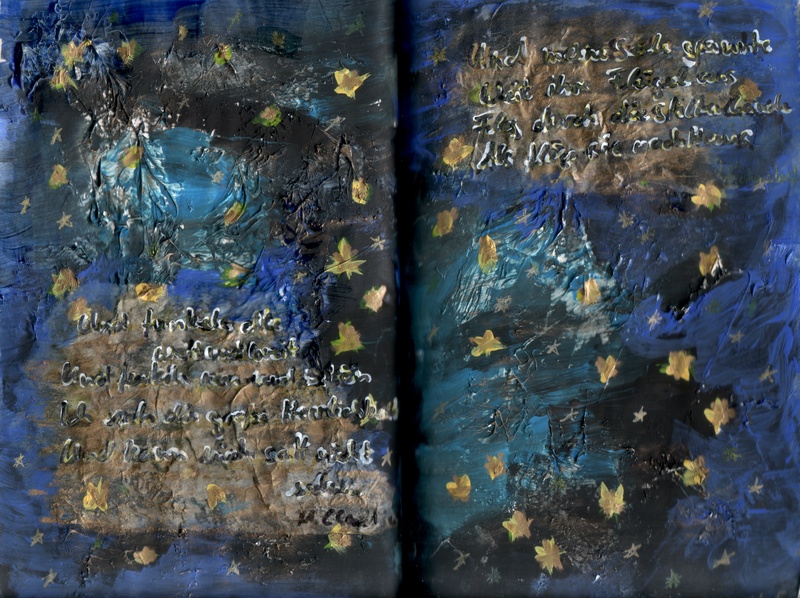 Und funkeln
Und funkeln rein und schön
Ich seh die große Herrlichkeit
Und kann mich satt nicht
sehn
Und meine Seele spannte
Weit ihre Flügel aus
Flog durch die stillen Lande
Als flöge sie nach Haus